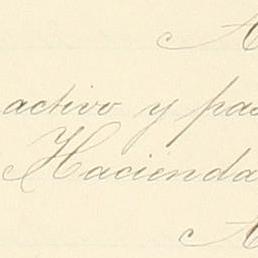 A
activo y pas
Hacienda
A